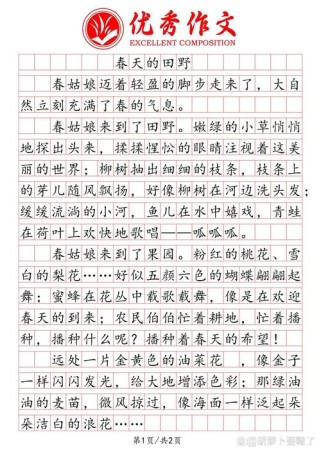 优秀作文
EXCELLENT COMPOSITION
春天的田野
春姑娘迈着轻盈的脚步走来了，大自
然立刻充满了春的气息。
春姑娘来到了田野。嫩绿的小草悄悄
地探出头来，揉揉惺忪的眼睛注视着这美
丽的世界；柳树抽出细细的枝条，枝条上
的芽儿随风飘扬，好像柳树在河边洗头发；
缓缓流淌的小河，鱼儿在水中嬉戏，青蛙
在荷叶上欢快地歌唱——呱呱呱。
春姑娘来到了果园。粉红的桃花、雪
白的梨花……好似五颜六色的蝴蝶翩翩起
舞；蜜蜂在花丛中载歌载舞，像是在欢迎
春天的到来；农民伯伯忙着耕地，忙着播
种，播种什么呢？播种着春天的希望！
远处一片金黄色的油菜花，像金子
一样闪闪发光，给大地增添色彩；那绿油
油的麦苗，微风掠过，像海面一样泛起朵
朵洁白的浪花……
第1页/共2页